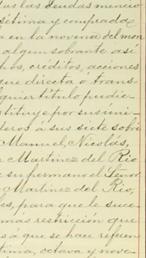 das las deudas mencio
sétima y comprada
a en la novena del mon
algun sobrante así
bls, créditos, acciones
que directa ó trans
quier título pudie
stituye por sus úni
deros á sus siete sobri
Manuel, Nicolas,
Martinez del Rio
su hermano el Señor
Martinez del Rio,
es, para que le suce
más restricción que
á que se hace referen
tima, octava y nove